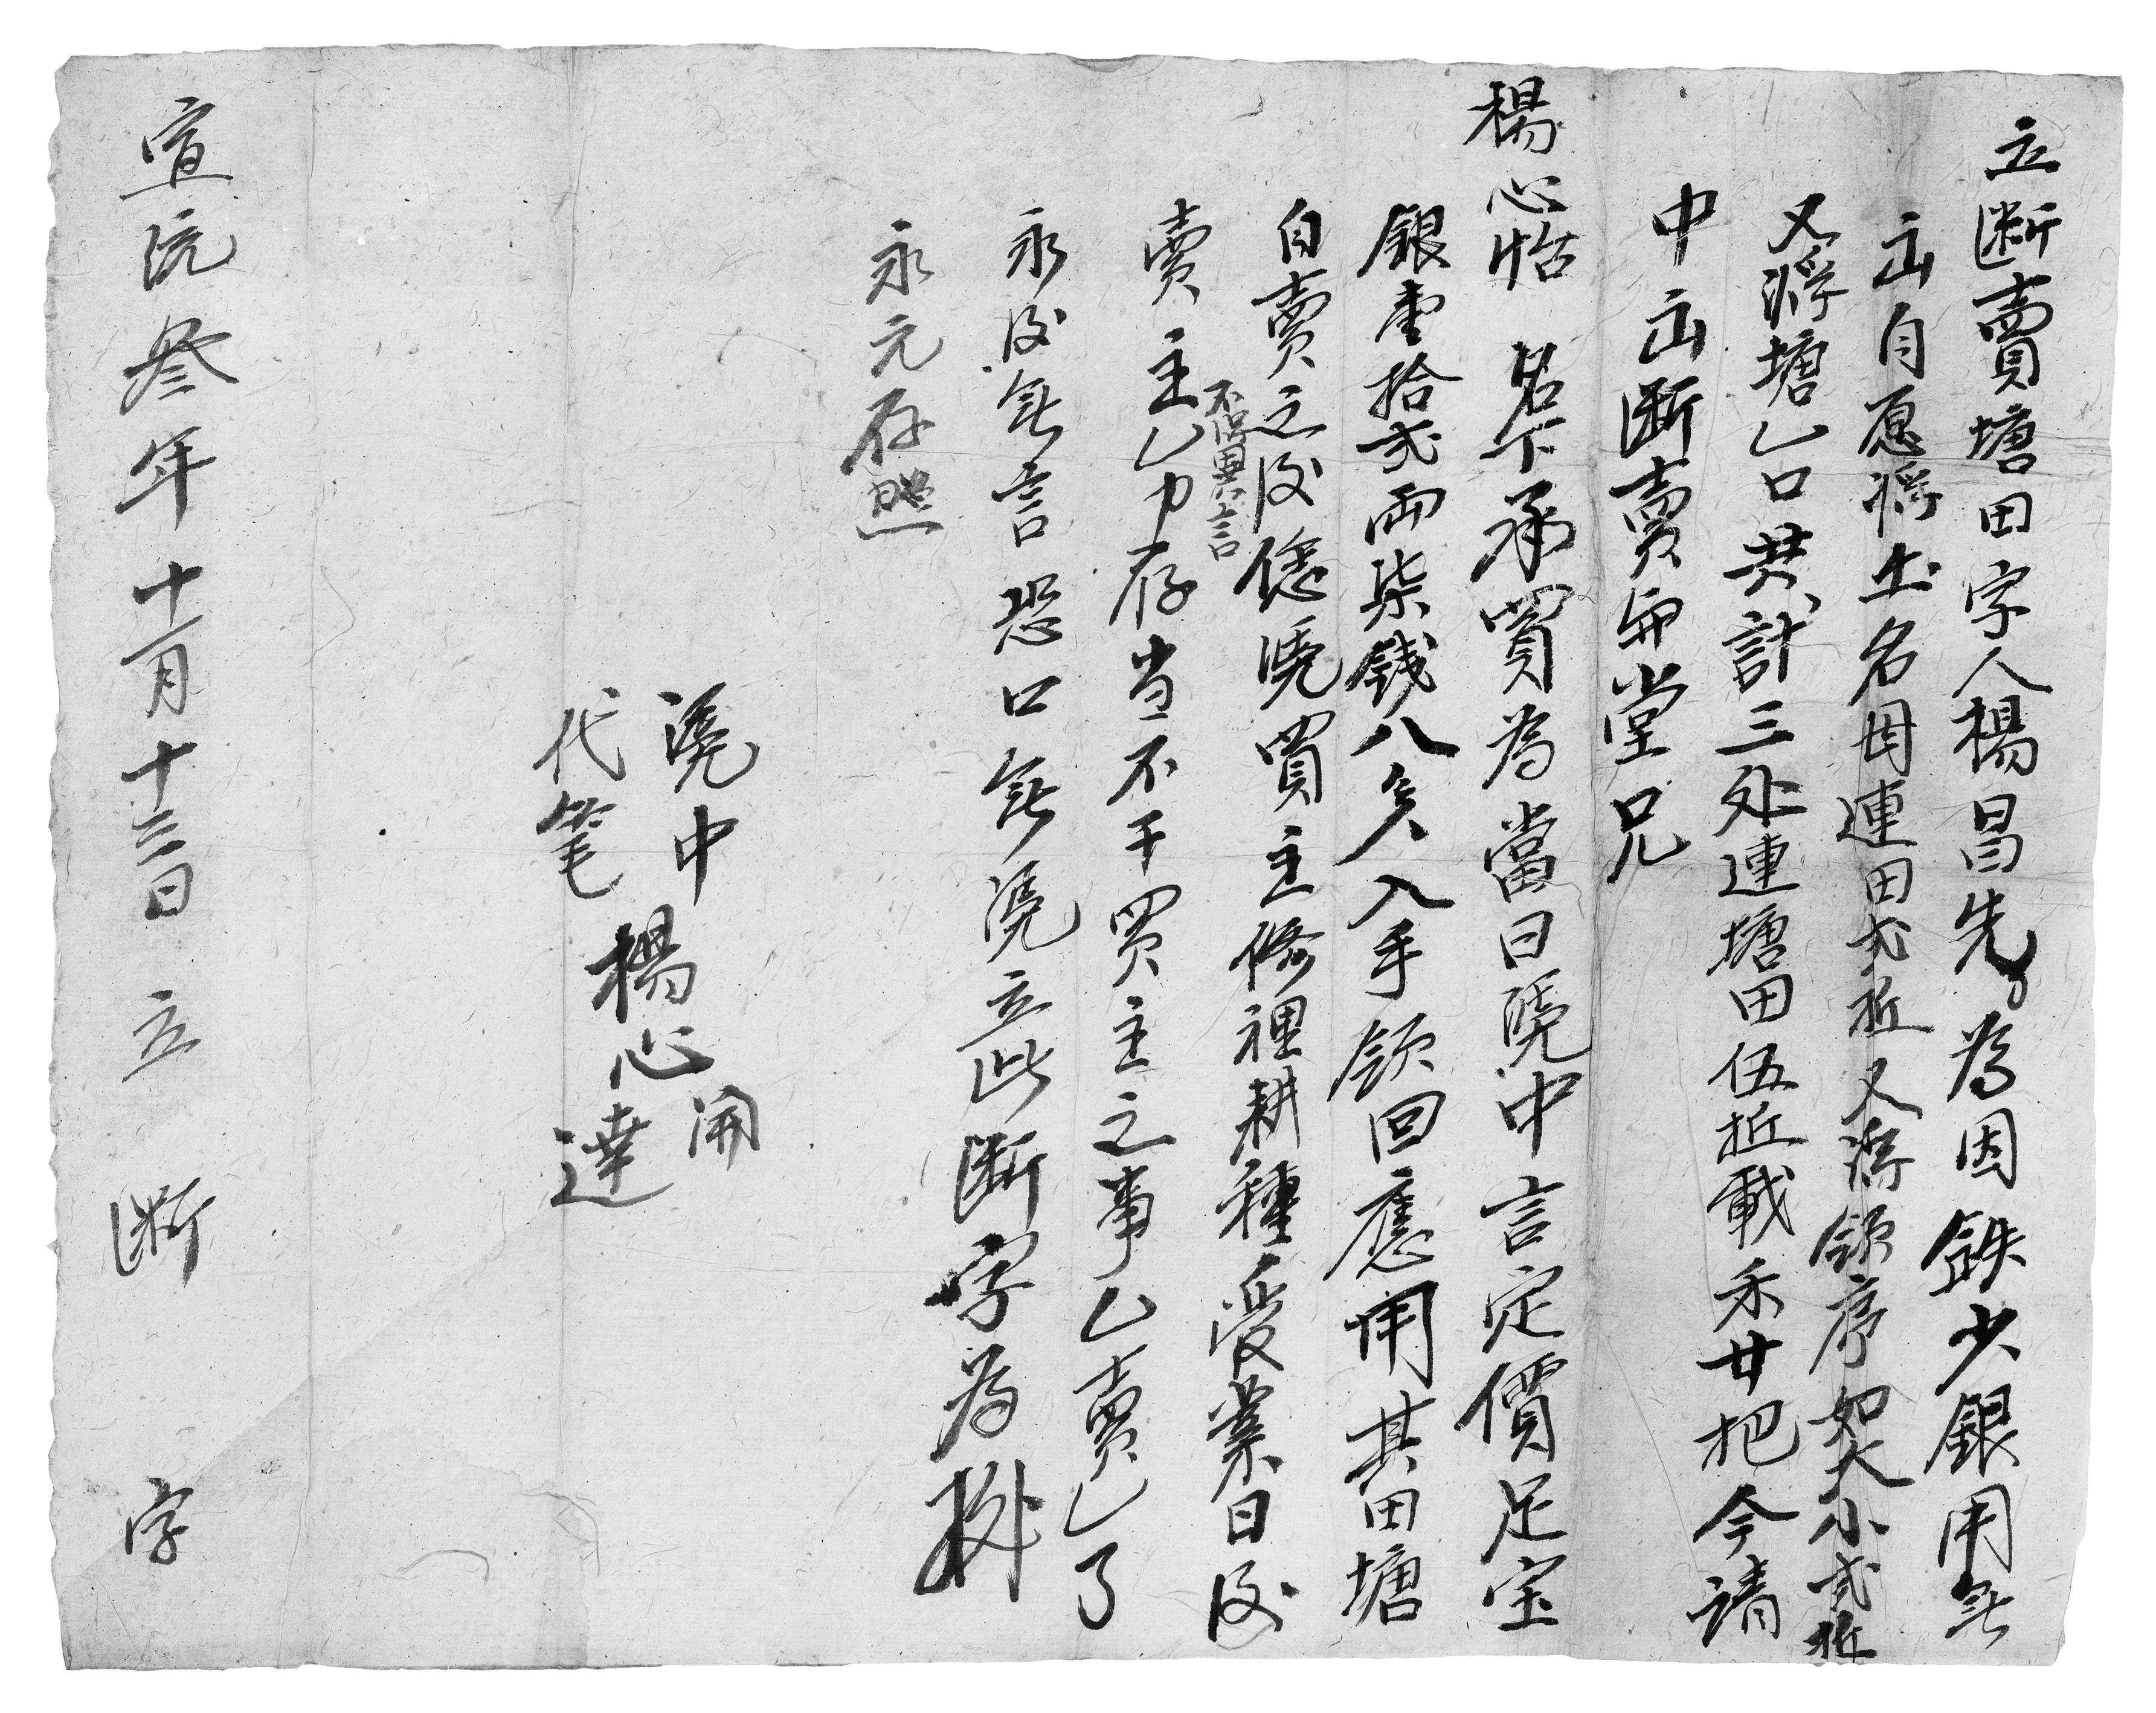 立断賣塘田字人楊昌先為因缺少銀用無
出自愿將土名田連田弍坵又將領序如大小弍坵
又將塘乙口共計三处連塘田伍坵載禾廿把今請
中出断賣與堂兄
楊心恬名下承買為當日凴中言定價足宝
銀壹拾弍両柒錢八分入手領回應用其田塘
自賣之後凴買主修裡耕種受業日後
不得異言
賣主乙力存当不干買主之事乙賣乙了
永後無言恐口無凴立此断字為據
永元存照
凴中 楊心開
代笔 達
宣統叄年十一月十三日立断字